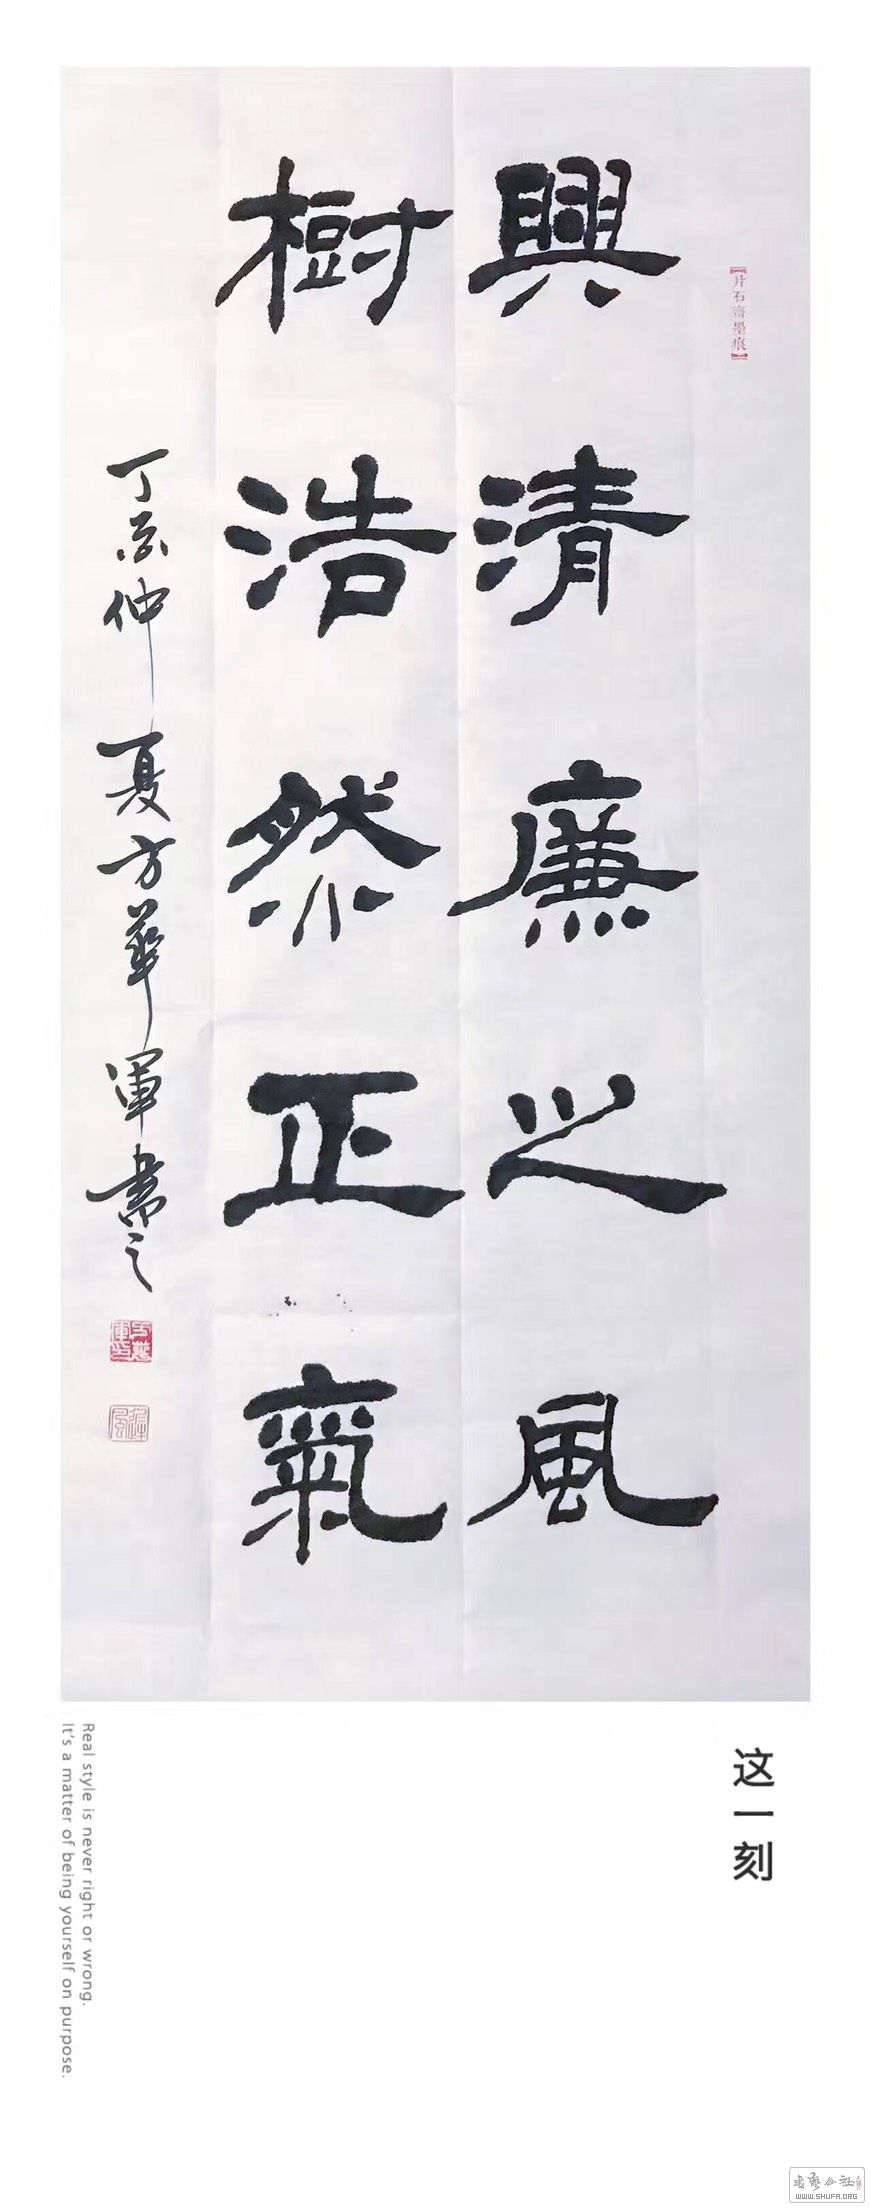 興清廉之風
樹浩然正氣
丁酉仲夏方華軍書之
【片石齋墨痕】
这一刻
Real style is never right or wrong.
It's a matter of being yourself on purpose.
WWW.SHUFA.ORG